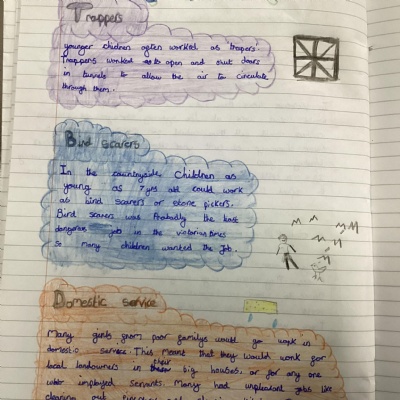 Trappers
younger children often worked as trapers.
Trappers worked to open and shut doors
in tunnels to allow the air to circulate
through them.
Bird scarers
In the countryside Children as
young as 7 yrs old could work
as bird scarers or stone pickers.
Bird scarers was Probably the
dangerous job in the victorian times
so many children wanted the Job.
Domestic service
Many girls from poor familys would go work in
domestic service. This meant that they would work for
local landowners in their big houses, or for any one
who employed servants. Many had unpleasant jobs like
cleaning out